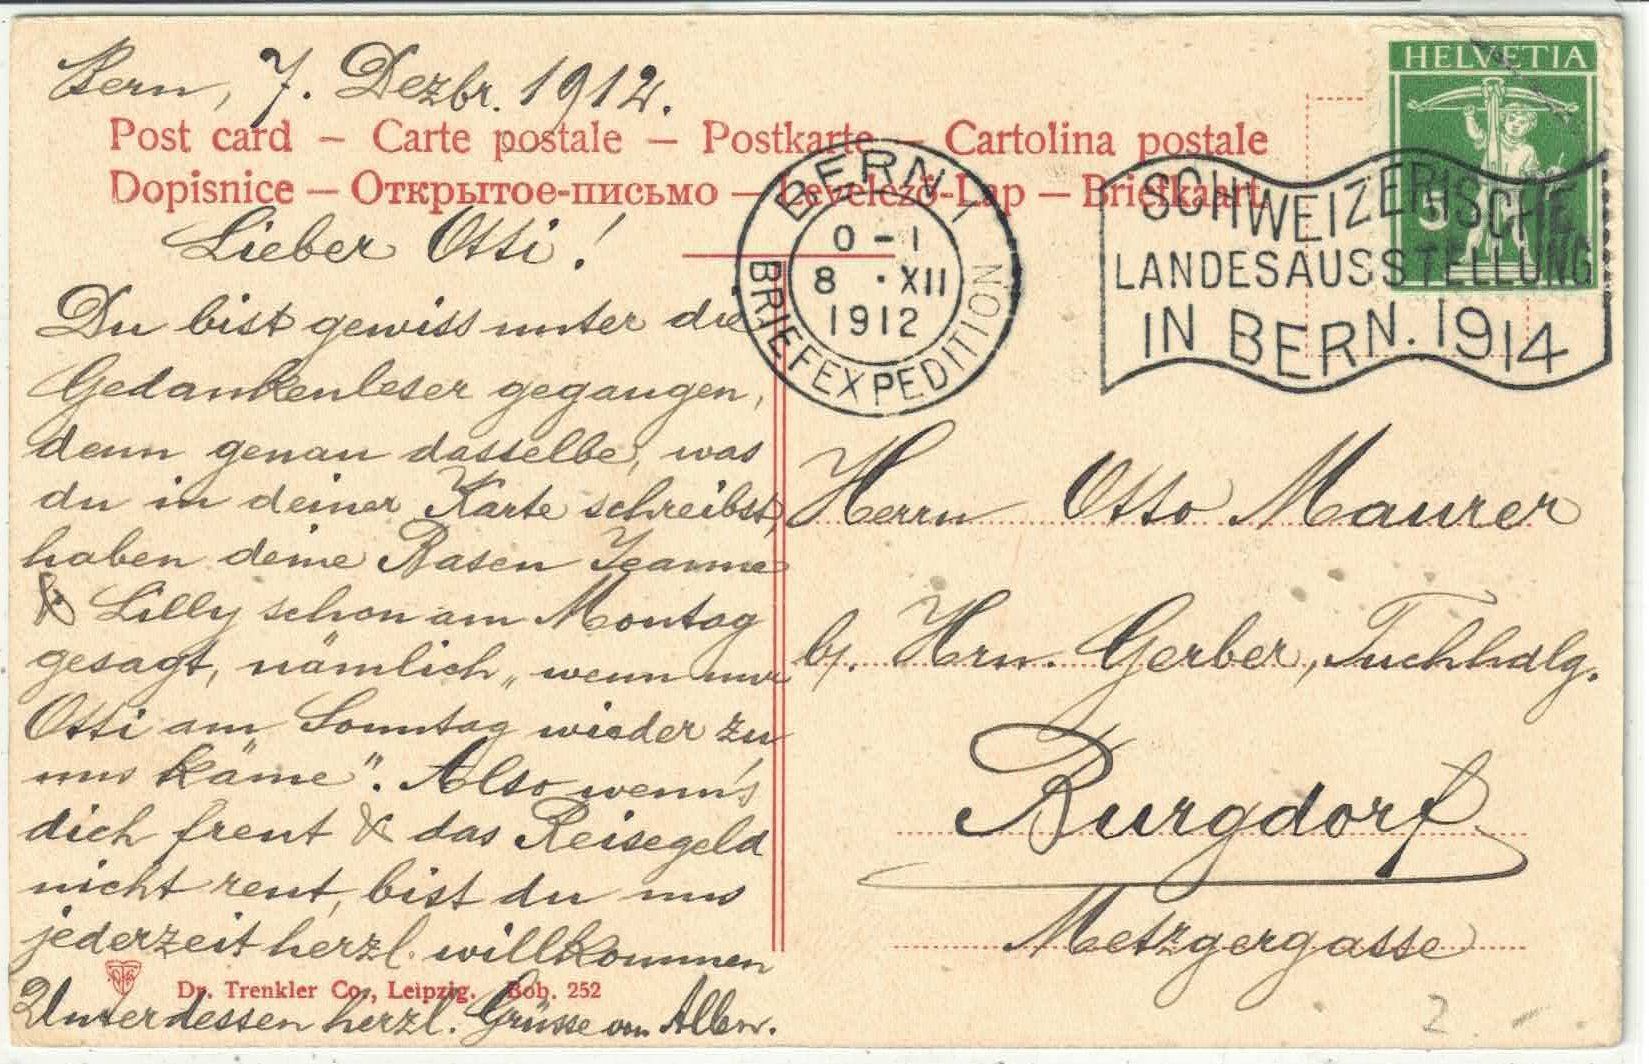 Bern, 7. Dezbr. 1912.
Post card – Carte postale – Postkarte – Cartolina postale
Dopisnice – Открытое-письмо – Levelező-Lap – Briefkaart
Lieber Otti!
Du bist gewiss unter die
Gedankenleser gegangen,
denn genau dasselbe, was
du in deiner Karte schreibst,
haben deine Basen Jeanne
& Lilly schon am Montag
gesagt, nämlich „wenn nur
Otti am Sonntag wieder zu
uns käme". Also wenn's
dich freut & das Reisegeld
nicht reut, bist du uns
jederzeit herzl. willkommen
Unterdessen herzl. Grüsse von Allen.
Dr. Trenkler Co., Leipzig. Bob. 252
HELVETIA
5
BERN 1
0 – 1
8 · XII
1912
BRIEFEXPEDITION
SCHWEIZERISCHE
LANDESAUSSTELLUNG
IN BERN. 1914
Herrn Otto Maurer
b/. Hrn. Gerber, Tuchhdlg.
Burgdorf
Metzgergasse
2.–